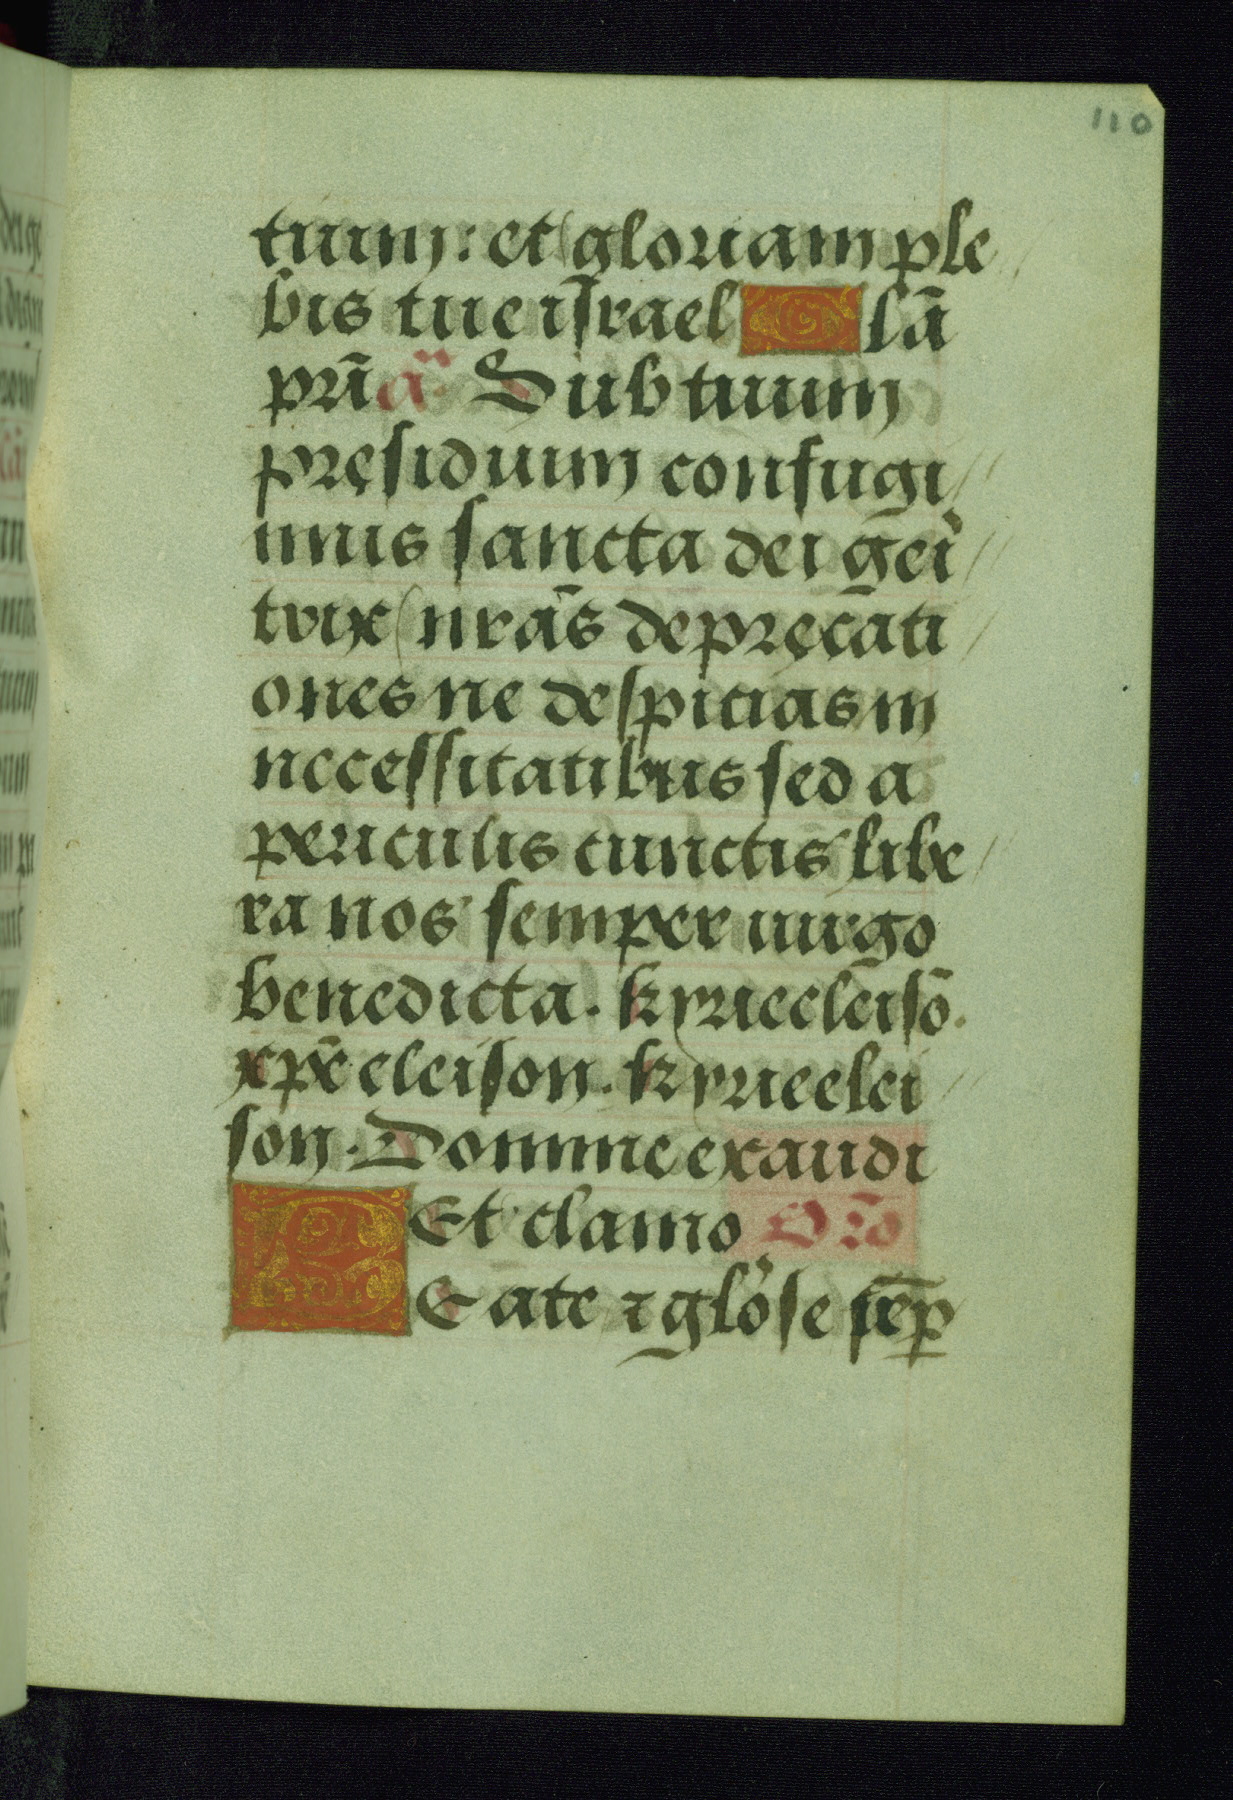 110
tuum: et gloriam ple
bis tue israel Glã
pr̃i añ Sub tuum
pręsidiuum confugi
mus sancta dei geĩ
trix nrãs depręcati
ones ne despicias in
necessitatibus sed a
periculis cunctis libe
ra nos semper uirgo
benedicta. kyrieeleisõ.
xp̃e eleison. kyrieelei
son. Domine exaudi
Et clamo Orõ
BEate ⁊ glõse sẽp